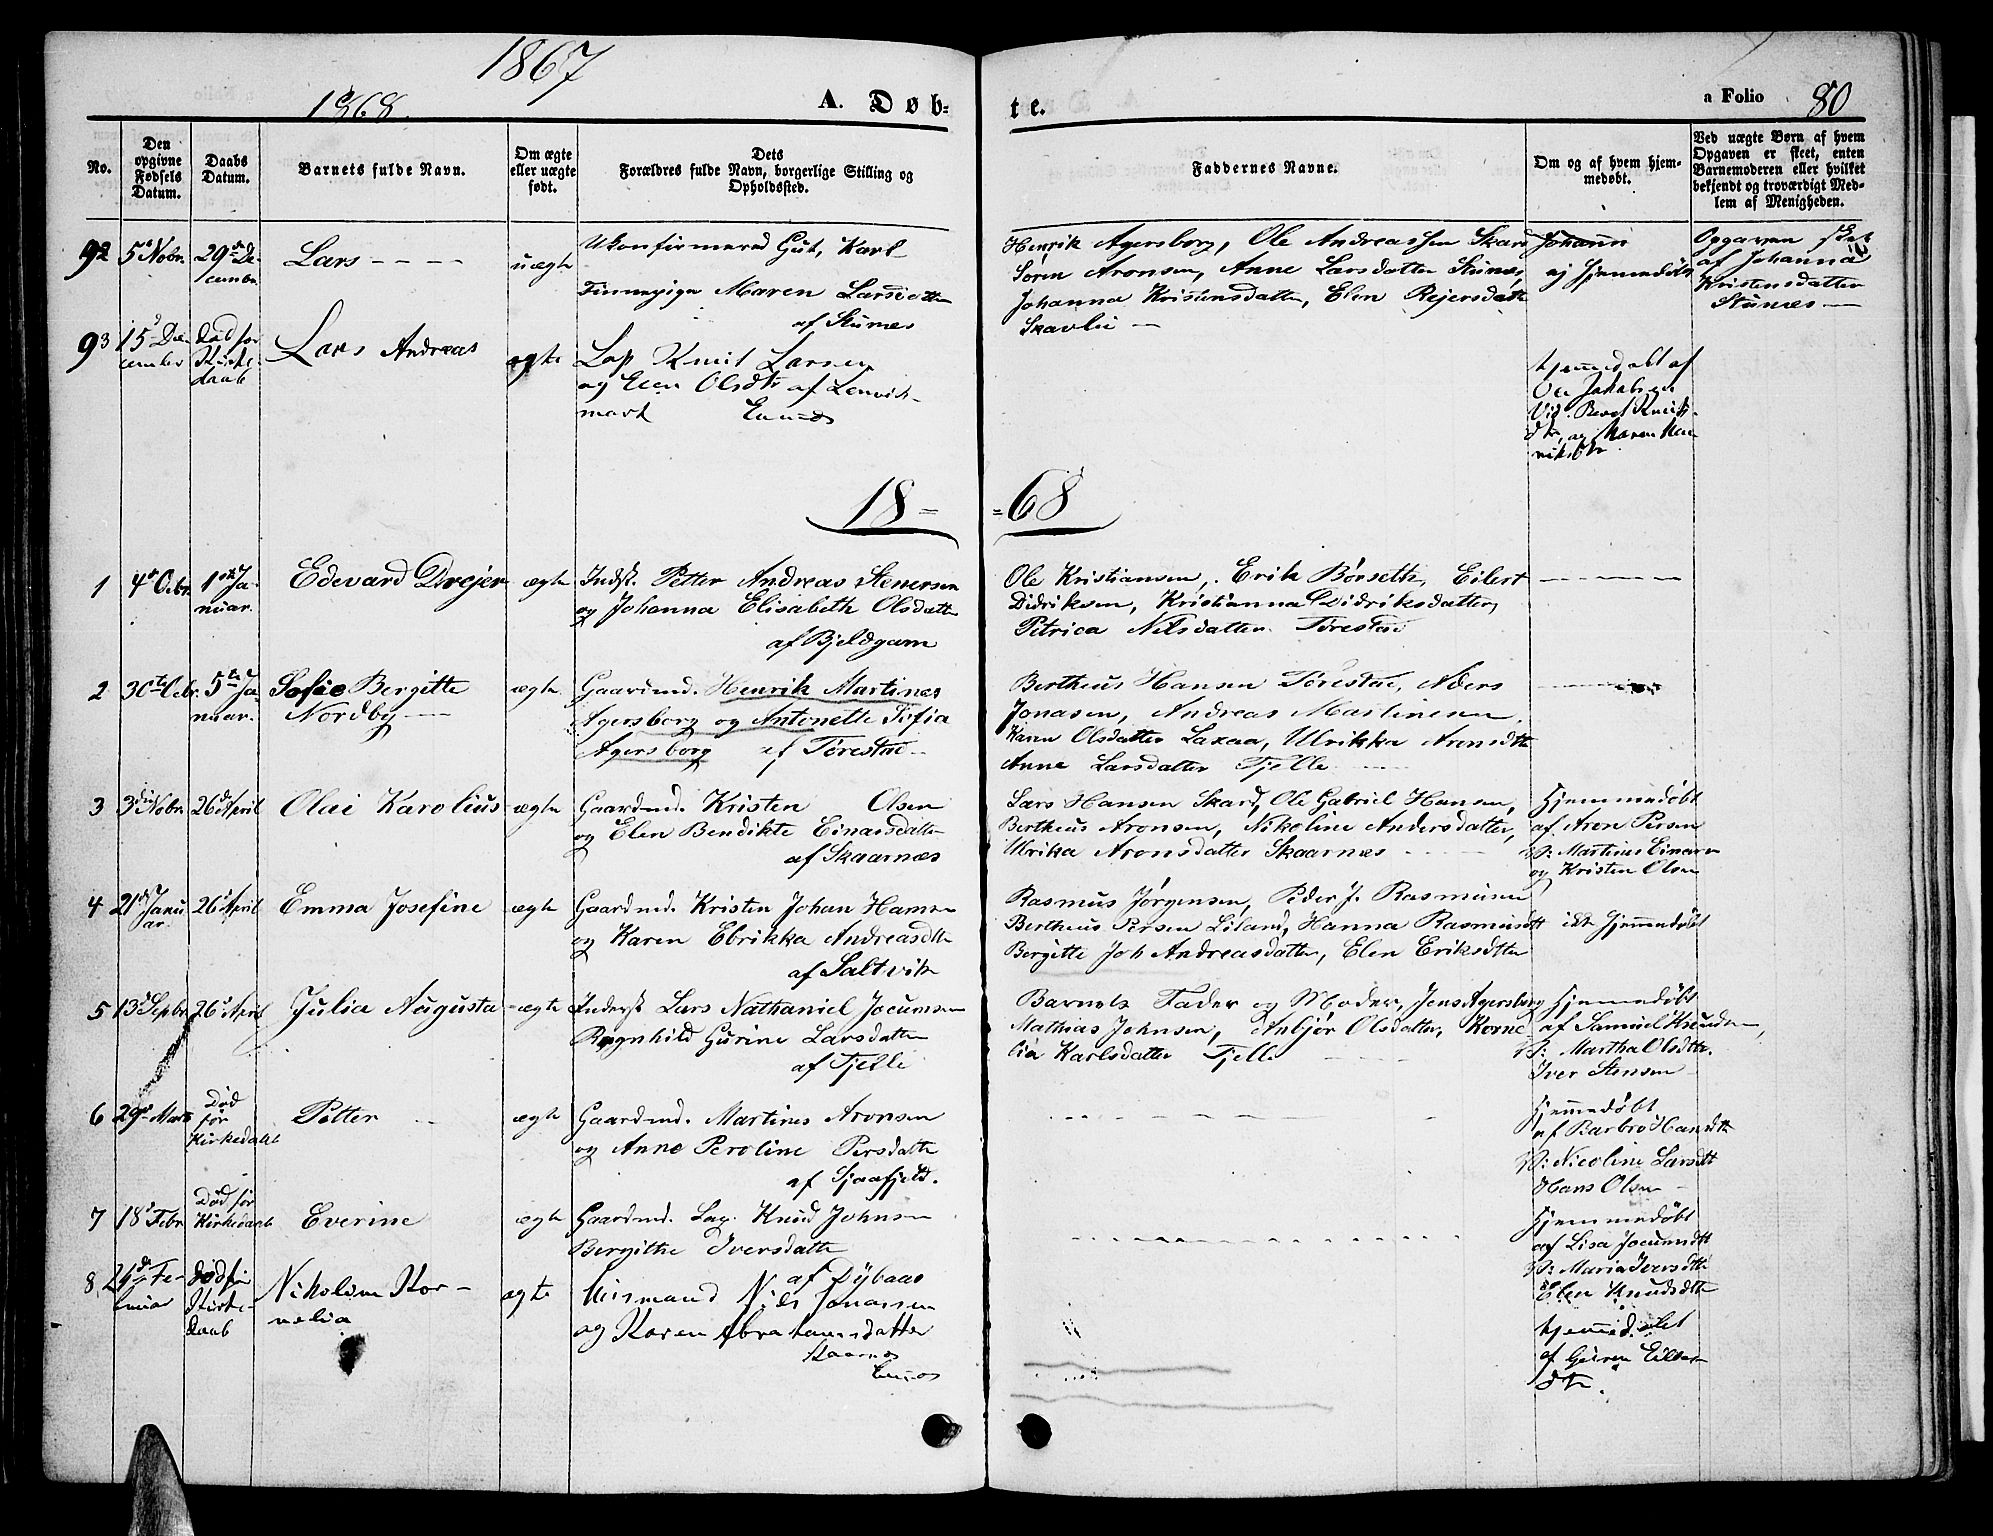 1867
1868.
A. Døb-
te.
a Folio 80
No.
Den opgivne Fødsels Datum.
Daabs Datum.
Barnets fulde Navn.
Om ægte eller uægte født.
Dets Forældres fulde Navn, borgerlige Stilling og Opholdssted.
Faddernes Navne.
Om og af hvem hjem-
medøbt.
Ved uægte Børn af hvem
Opgaven er skeet, enten
Barnemoderen eller hvilket
bekjendt og troværdigt Med-
lem af Menigheden.
92 5 Nobr. 29 De-
cembr
Lars - - - -
uægte
Ukonfirmered Gut, Karl
Finnepige Maren Larsdatter
af Stunes
Henrik Agersborg, Ole Andreassen Skard
Sören Aronsen, Anne Larsdatter Stunes,
Johanna Kristensdatter, Elen Rejersdatt
Skavlie
ej hjemmedøbt
Opgaven sket
af Johanna
Kristensdatter
Stunæs
93 15 De-
cember
død før
Kirke-
daab
Lars Andreas
ægte
Lap Knut Larsen
og Elen Olsdtr af Lenvik-
mark
hjemmedøbt af
Ole Jakobsen
Vid. Berit Knuts-
dtr, og Maren Hen-
riksdtr
18 = = 68
1 4 Ocbr. 1ste Ja-
nuar.
Edevard Drejer
ægte
Indst. Petter Andreas Stenersen
og Johanna Elisabeth Olsdatter
af Bjeldgam
Ole Kristiansen, Erik Børseth, Eilert
Didriksen, Kristianna Didriksdatter,
Petrica Nilsdatter
2 30te Ocbr. 5te Ja-
nuar.
Sofie Bergitte
Nordby
ægte
Gaardmd. Henrik Martines
Agersborg og Antonette Sofia
Agersborg af
Bertheus Hansen
Jonasen, Andreas Martinesen
Karen Olsdatter Laxaa, Ulrikka Aronsdtr
Anne Larsdatter Fjelle
3 3die Nobr. 26 April
Olai Karolius
ægte
Gaardmd. Kristen Olsen
og Elen Bendikte Einarsdatter
af Skaarnæs
Lars Hansen Skard, Ole Gabriel Hansen,
Bertheus Aronsen, Nikoline Andersdatter,
Ulrika Aronsdatter Skaarnæs
Hjemmedøbt
af Aron Persen
V: Martinus Einarsn
og Kristen Olsen
4 21de Janu-
ar. 26 April
Emma Josefine
ægte
Gaardmd. Kristen Johan Hansen
og Karen Ebrikka Andreasdtr
af Saltvik
Rasmus Jørgensen, Peder J. Rasmusen
Bertheus Persen Liland, Hanna Rasmusdtr
Bergitte Joh Andreasdatter, Elen Eriksdtter
ikke hjemmedøbt
5 13 Sepbr 26 April
Julia Augusta
ægte
Inderst Lars Nathaniel Jocumsen
Ragnhild Gurine Larsdatter
af Fjelle
Barnets Fader og Moder, Jens Agersborg
Mathias Johnsen, Anbjør Olsdatter, Korne-
lia Karlsdatter Fjelle
Hjemmedøbt
af Samuel Knudsen,
V: Martha Olsdtr.
Iver Stensen
6 29 Marts
Død
før
Kirkedaab
Petter
ægte
Gaardmd. Martinus Aronsen
og Anne Peroline Persdatter
af Sjaafjeld.
Hjemmedøbt
af Barbro Hansdtr
V: Nicoline Larsdtr
Hans Olsen
7 18 Febr
Død før
Kirkedaab
Everine
ægte
Gaardmd. Lap. Knud Johnsen
Bergithe Iversdatter
af Dybaas
Hjemmedøbt
af Lisa Jocumsdtr
V: Maria Iversdtr
Elen Knudsdtr
8 24de Fe-
bruar
død før
Kirke-
daab
Nikoline Kor-
nelia
ægte
Huusmand Nils Jonassen
og Karen Abrahamsdatter
Skaarnes
hjemmedøbt
af Guren Eilers-
dtr.